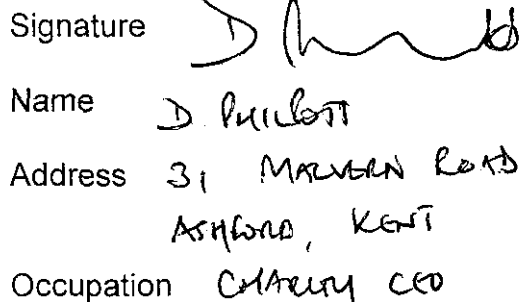 Signature
Name D. PHILPOTT
Address 31 MALVERN ROAD
ASHFORD, KENT
Occupation CHARITY CEO